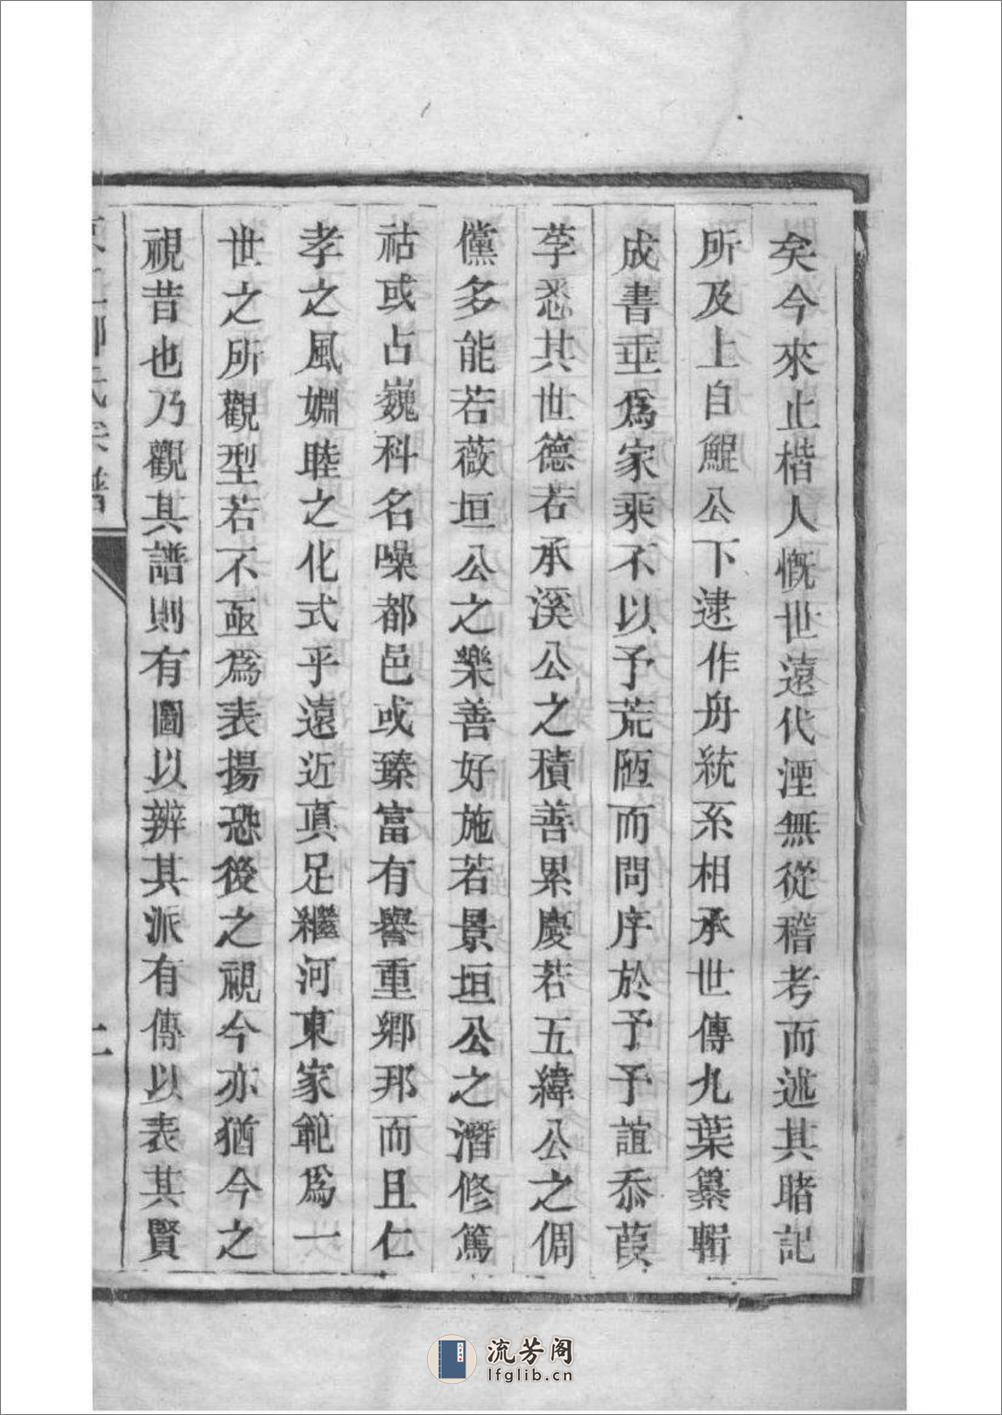 矣今來止楷人慨世遠代湮無從稽考而述其睹記
所及上自鯤公下逮作舟統系相承世傳九葉纂輯
成書垂爲家乘不以予荒陋而問序於予予誼忝葭
莩悉其世德若承溪公之積善累慶若五緯公之倜
儻多能若薇垣公之樂善好施若景垣公之潛修篤
祜或占巍科名噪都邑或臻富有譽重鄉邦而且仁
孝之風婣睦之化式乎遠近眞足繼河東家範爲一
世之所觀型若不亟爲表揚恐後之視今亦猶今之
視昔也乃觀其譜則有圖以辨其派有傳以表其賢
氏宗譜
流芳阁
lfglib.cn